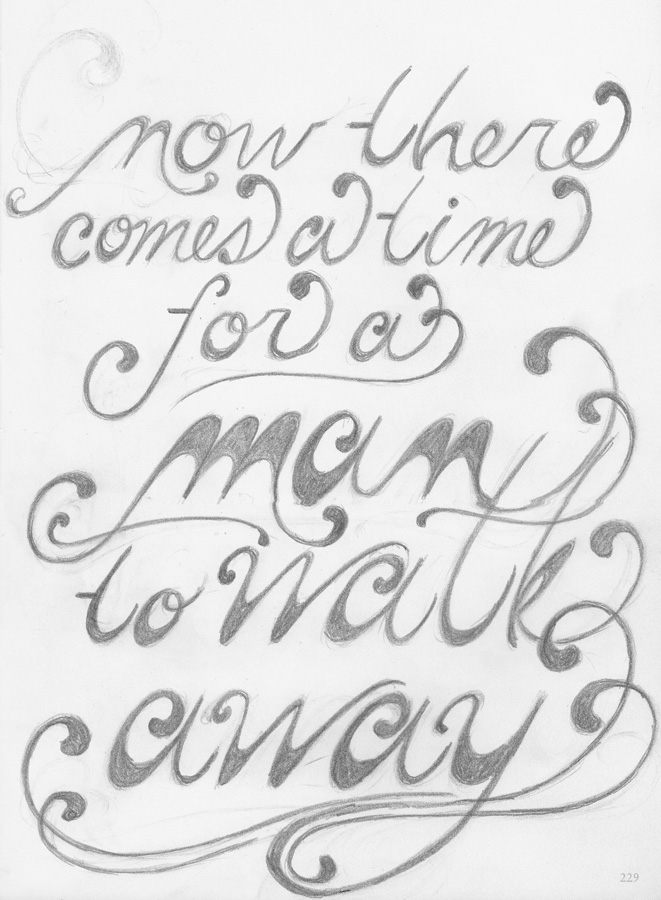 now there
comes a time
for a
man
to walk
away
229